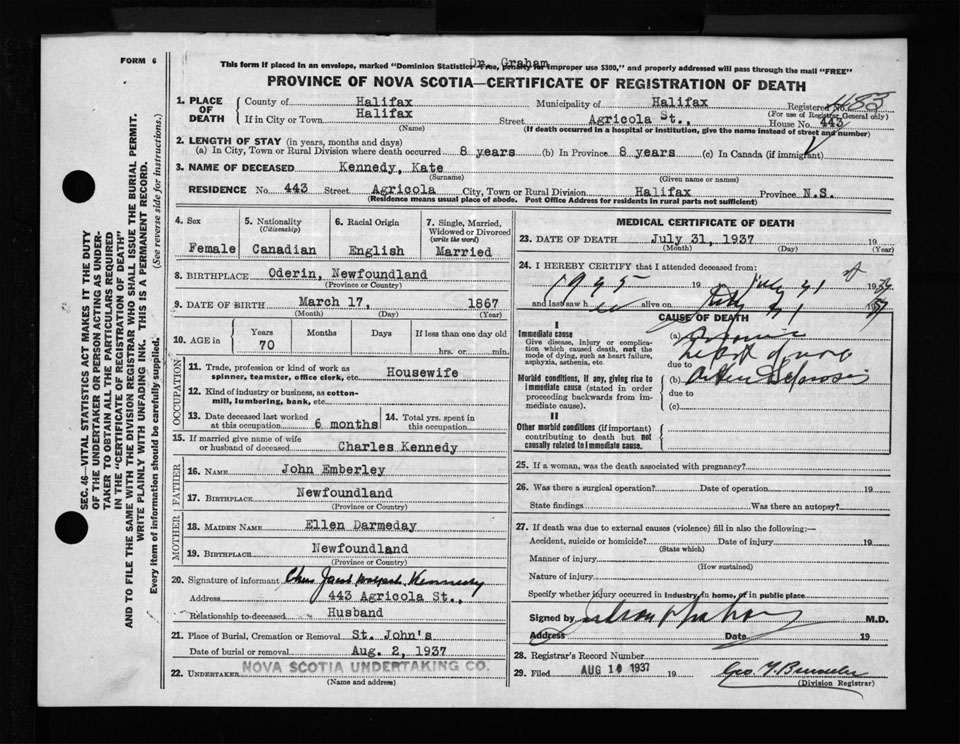 FORM 6
Dr. Graham
This form if placed in an envelope, marked "Dominion Statistics—Free, penalty for improper use $300," and properly addressed will pass through the mail "FREE"
PROVINCE OF NOVA SCOTIA—CERTIFICATE OF REGISTRATION OF DEATH
1. PLACE OF DEATH
County of Halifax Municipality of Halifax Registered No. 1183
(For use of Registrar General only)
If in City or Town Halifax Street Agricola St., House No. 443
(Name) (If death occurred in a hospital or institution, give the name instead of street and number)
2. LENGTH OF STAY (in years, months and days)
(a) In City, Town or Rural Division where death occurred 8 years (b) In Province 8 years (c) In Canada (if immigrant)
3. NAME OF DECEASED Kennedy, Kate
(Surname) (Given name or names)
RESIDENCE No. 443 Street Agricola City, Town or Rural Division Halifax Province N.S.
(Residence means usual place of abode. Post Office Address for residents in rural parts not sufficient)
4. Sex
Female
5. Nationality
(Citizenship)
Canadian
6. Racial Origin
English
7. Single, Married, Widowed or Divorced
(write the word)
Married
8. BIRTHPLACE Oderin, Newfoundland
(Province or Country)
9. DATE OF BIRTH March 17, 1867
(Month) (Day) (Year)
10. AGE in
Years Months Days If less than one day old
70 hrs. or min.
OCCUPATION
11. Trade, profession or kind of work as spinner, teamster, office clerk, etc. Housewife
12. Kind of industry or business, as cotton-mill, lumbering, bank, etc.
13. Date deceased last worked at this occupation 6 months
14. Total yrs. spent in this occupation
15. If married give name of wife or husband of deceased Charles Kennedy
FATHER
16. NAME John Emberley
17. BIRTHPLACE Newfoundland
(Province or Country)
MOTHER
18. MAIDEN NAME Ellen Darmeday
19. BIRTHPLACE Newfoundland
(Province or Country)
20. Signature of informant Chas Jacob Kennedy
Address 443 Agricola St.,
Relationship to deceased Husband
21. Place of Burial, Cremation or Removal St. John's
Date of burial or removal Aug. 2, 1937
22. UNDERTAKER NOVA SCOTIA UNDERTAKING CO.
(Name and address)
MEDICAL CERTIFICATE OF DEATH
23. DATE OF DEATH July 31, 1937 19
(Month) (Day) (Year)
24. I HEREBY CERTIFY that I attended deceased from:
19
and last saw h alive on 19
CAUSE OF DEATH
I
Immediate cause
Give disease, injury or complication which caused death, not the mode of dying, such as heart failure, asphyxia, asthenia, etc
(a)
due to
Morbid conditions, if any, giving rise to immediate cause (stated in order proceeding backwards from immediate cause).
(b)
due to
(c)
II
Other morbid conditions (if important) contributing to death but not causally related to immediate cause.
25. If a woman, was the death associated with pregnancy?
26. Was there a surgical operation? Date of operation 19
State findings Was there an autopsy?
27. If death was due to external causes (violence) fill in also the following:—
Accident, suicide or homicide? Date of injury 19
(State which)
Manner of injury
(How sustained)
Nature of injury
Specify whether injury occurred in Industry, in home, or in public place
Signed by M.D.
Address Date 19
28. Registrar's Record Number
29. Filed AUG 10 1937 19
(Division Registrar)
SEC. 46—VITAL STATISTICS ACT MAKES IT THE DUTY
OF THE UNDERTAKER OR PERSON ACTING AS UNDER-
TAKER TO OBTAIN ALL THE PARTICULARS REQUIRED
IN THE "CERTIFICATE OF REGISTRATION OF DEATH"
AND TO FILE THE SAME WITH THE DIVISION REGISTRAR WHO SHALL ISSUE THE BURIAL PERMIT.
WRITE PLAINLY WITH UNFADING INK. THIS IS A PERMANENT RECORD.
Every item of information should be carefully supplied. (See reverse side for instructions.)